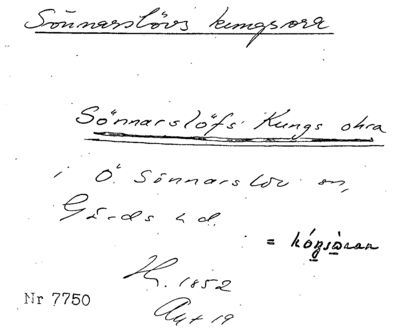 Sönnarslövs kungsora
Sönnarslöfs Kungs ohra
i Ö. Sönnarslöv sn,
Gärds hd.
= kóŋsòran
H. 1852
Nr 7750
Akt 19